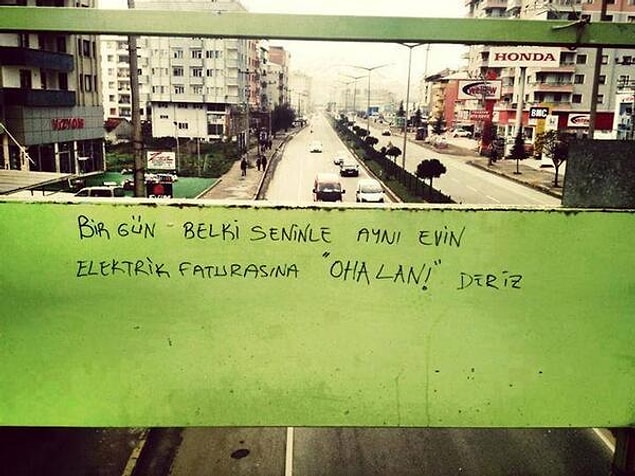 HONDA
VİZYON
BMC
BİR GÜN BELKİ SENİNLE AYNI EVİN
ELEKTRİK FATURASINA "OHA LAN!" DERİZ